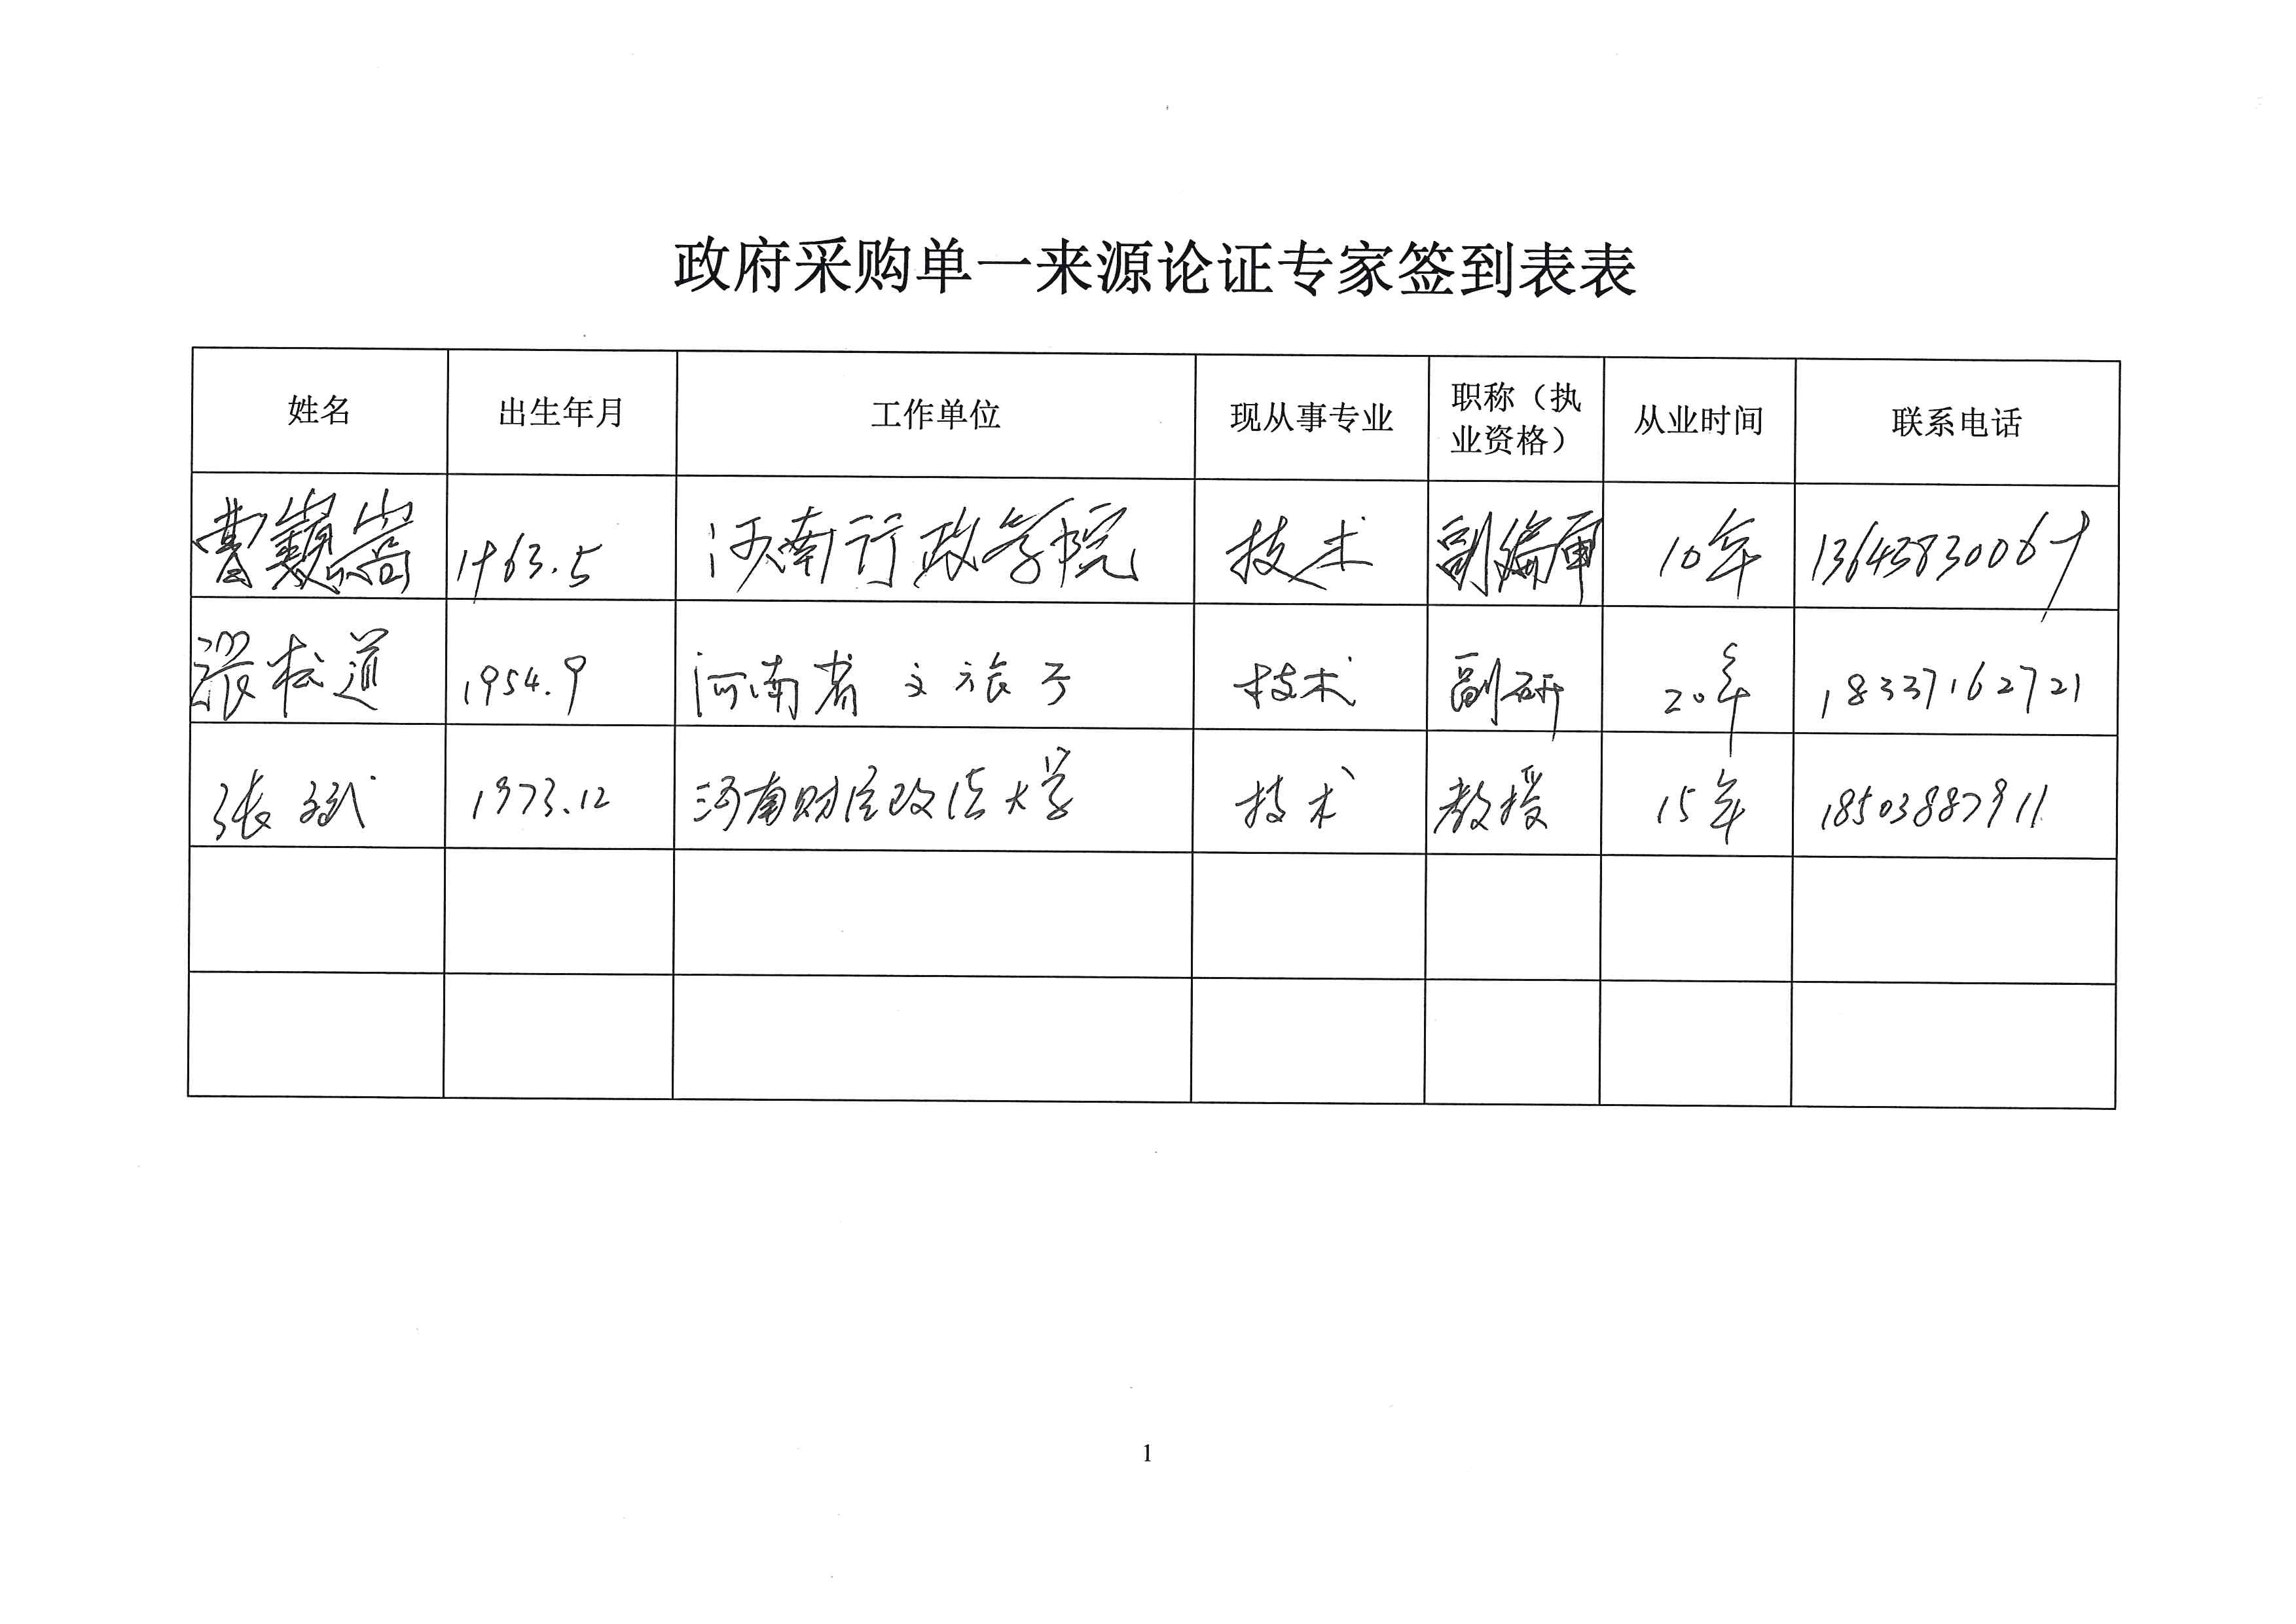 政府采购单一来源论证专家签到表表
姓名 出生年月 工作单位 现从事专业 职称（执业资格） 从业时间 联系电话
曹巍嵩 1963.5 河南行政学院 技术 副编审 10年 13643830069
张松道 1954.9 河南省文旅厅 技术 副研 20年 18337162721
张斌 1973.12 河南财经政法大学 技术 教授 15年 18503887911
1